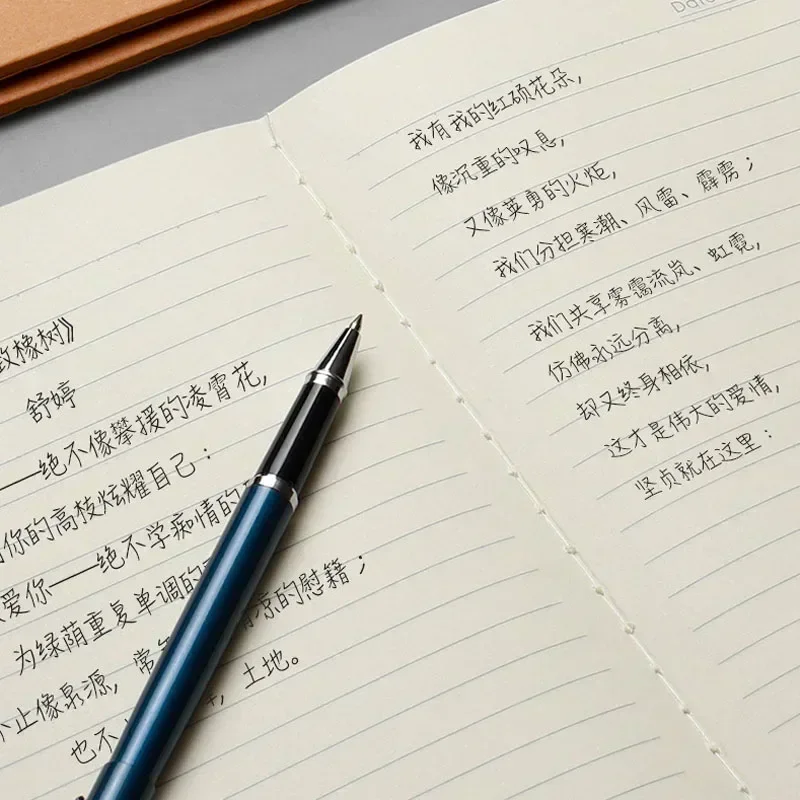 致橡树》
舒婷
——绝不像攀援的凌霄花,
你的高枝炫耀自己:
爱你——绝不学痴情的
为绿荫重复单调的
止像泉源, 常 凉的慰籍;
也不 , 土地。
我有我的红硕花朵,
像沉重的叹息,
又像英勇的火炬,
我们分担寒潮、风雷、霹雳;
我们共享雾霭流岚、虹霓,
仿佛永远分离,
却又终身相依,
这才是伟大的爱情,
坚贞就在这里: